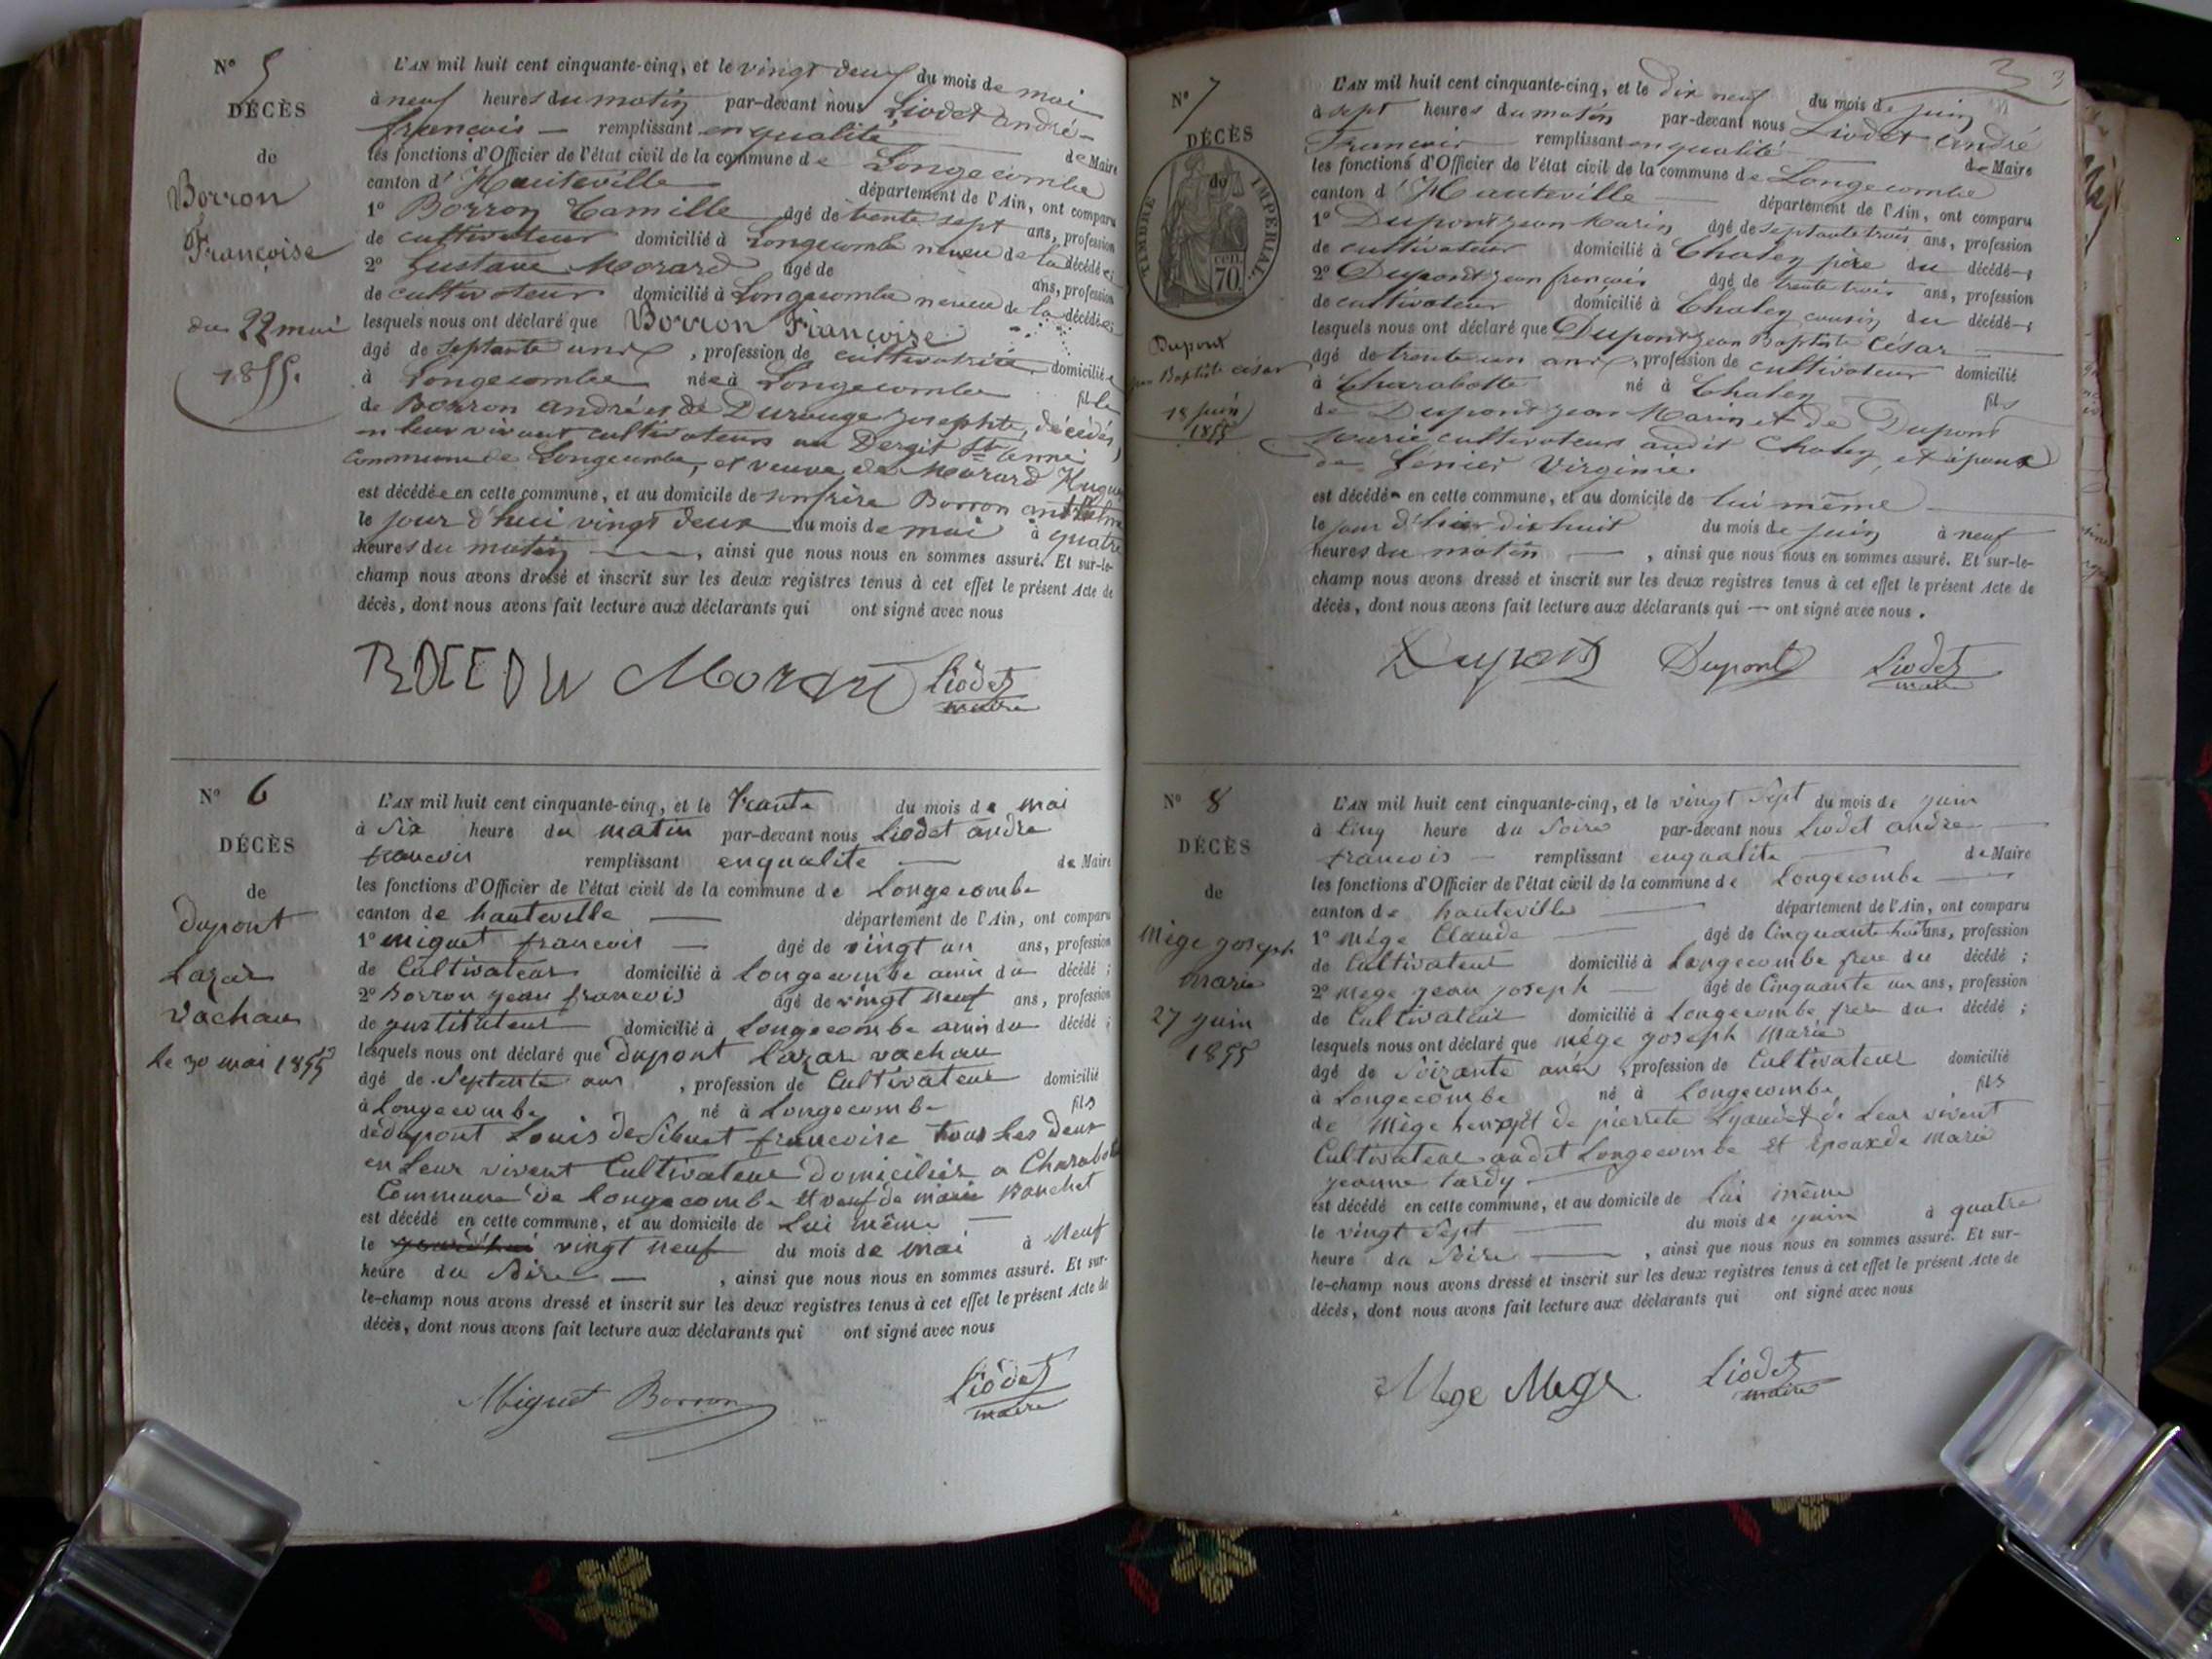 N° 5
DÉCÈS
de
Borron
Françoise
du 22 mai
1855.
L'AN mil huit cent cinquante-cinq, et le vingt deux du mois de mai
à neuf heures du matin par-devant nous Liodet andré-
françois — remplissant en qualité de Maire
les fonctions d'Officier de l'état civil de la commune de Longecombe
canton d'Hauteville département de l'Ain, ont comparu
1° Borron Camille âgé de trente sept ans, profession
de cultivateur domicilié à Longecombe neveu de la décédée;
2° Gustave Morard âgé de ans, profession
de cultivateur domicilié à Longecombe neveu de la décédée
lesquels nous ont déclaré que Borron Françoise
âgé de septante un , profession de cultivatrice domiciliée
à Longecombe née à Longecombe fille
de Borron andré et de Durouge Josephte, décédés,
en leur vivant cultivateurs au Dergit Ste Anne,
commune de Longecombe, et veuve de Morard
est décédée en cette commune, et au domicile de son frère Borron
le jour d'hui vingt deux du mois de mai à quatre
heures du matin —, ainsi que nous nous en sommes assuré. Et sur-le-
champ nous avons dressé et inscrit sur les deux registres tenus à cet effet le présent Acte de
décès, dont nous avons fait lecture aux déclarants qui ont signé avec nous
Morard Liodet
maire
N° 6
DÉCÈS
de
dupont
Lazar
vachau
le 30 mai 1855
L'AN mil huit cent cinquante-cinq, et le trante du mois de mai
à six heure du matin par-devant nous Liodet andre
francois remplissant enqualite — de Maire
les fonctions d'Officier de l'état civil de la commune de Longecombe
canton de hauteville — département de l'Ain, ont comparu
1° miguet francois — âgé de vingt un ans, profession
de Cultivateur domicilié à Longecombe amin du décédé ;
2° Borron jean francois âgé de vingt neuf ans, profession
de ynstituteur domicilié à Longecombe amin du décédé ;
lesquels nous ont déclaré que dupont Lazar vachau
âgé de Septente ans , profession de Cultivateur domicilié
à Longecombe né à Longecombe fils
de dupont Louis de Sibuet francoise tous les deux
en Leur vivent Cultivateur Domiciliés a Charabot
Commune de Longecombe et veuf de marie Ranchet
est décédé en cette commune, et au domicile de Lui même —
le vingt neuf du mois de mai à Neuf
heure du Soire — , ainsi que nous nous en sommes assuré. Et sur-
le-champ nous avons dressé et inscrit sur les deux registres tenus à cet effet le présent Acte de
décès, dont nous avons fait lecture aux déclarants qui ont signé avec nous
Miguet Borron Liodet
maire
3 3
N° 7
DÉCÈS
de
TIMBRE IMPÉRIAL
70 cen.
Dupont
Jean Baptiste césar
18 juin
1855
L'AN mil huit cent cinquante-cinq, et le dix neuf du mois de juin
à sept heures du matin par-devant nous Liodet andré
François remplissant en qualité de Maire
les fonctions d'Officier de l'état civil de la commune de Longecombe
canton d'Hauteville — département de l'Ain, ont comparu
1° Dupont jean Marin âgé de septante trois ans, profession
de cultivateur domicilié à Chaley père du décédé ;
2° Dupont jean françois âgé de trente trois ans, profession
de cultivateur domicilié à Chaley cousin du décédé ;
lesquels nous ont déclaré que Dupont jean Baptiste César —
âgé de trente un ans, profession de cultivateur domicilié
à Charabotte né à Chaley fils
de Dupont jean Marin et de Dupont
Marie cultivateurs audit Chaley, et époux
de Génier Virginie.
est décédé en cette commune, et au domicile de lui même —
le jour d'hier dix huit du mois de juin à neuf
heures du matin — , ainsi que nous nous en sommes assuré. Et sur-le-
champ nous avons dressé et inscrit sur les deux registres tenus à cet effet le présent Acte de
décès, dont nous avons fait lecture aux déclarants qui — ont signé avec nous.
Dupont Dupont Liodet
maire
N° 8
DÉCÈS
de
Mége joseph
marie
27 juin
1855
L'AN mil huit cent cinquante-cinq, et le vingt Sept du mois de juin
à Cinq heure du Soire par-devant nous Liodet andre —
francois — remplissant enqualite — de Maire
les fonctions d'Officier de l'état civil de la commune de Longecombe —
canton de hauteville — département de l'Ain, ont comparu
1° Mége Claude — âgé de Cinquante huit ans, profession
de Cultivateur domicilié à Longecombe frere du décédé ;
2° Mege jean joseph — âgé de Cinquante un ans, profession
de Cultivateur domicilié à Longecombe frere du décédé ;
lesquels nous ont déclaré que mége joseph Marie
âgé de Soixante anés , profession de Cultivateur domicilié
à Longecombe né à Longecombe fils
de Mége et de pierrete Lyaudet de Leur vivent
Cultivateur audit Longecombe et Epoux de Marie
jeanne tardy —
est décédé en cette commune, et au domicile de Lui même
le vingt Sept — du mois de juin à quatre
heure du Soire — , ainsi que nous nous en sommes assuré. Et sur-
le-champ nous avons dressé et inscrit sur les deux registres tenus à cet effet le présent Acte de
décès, dont nous avons fait lecture aux déclarants qui ont signé avec nous
Mege Mege Liodet
maire